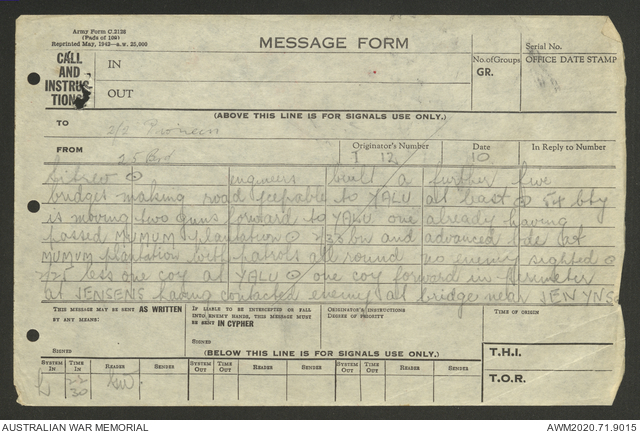 Army Form C.2128
(Pads of 100)
Reprinted May, 1943—A.W. 20,000
MESSAGE FORM
Serial No.
CALL
AND
INSTRUC
TIONS
IN
OUT
No. of Groups
GR.
OFFICE DATE STAMP
(ABOVE THIS LINE IS FOR SIGNALS USE ONLY.)
TO
2/2 Pioneers
FROM
25 Bde
Originator's Number
I 12
Date
10
In Reply to Number
Sitrep ⊙ engineers built a further five
bridges making road jeepable to YALU at least ⊙ 54 bty
is moving two guns forward to YALU one already having
passed MUMUM plantation ⊙ 2/33 bn and advanced bde at
MUMUM plantation with patrols all round no enemy sighted ⊙
2/25 less one coy at YALU ⊙ one coy forward in perimeter
at JENSENS having contacted enemy at bridge near JENYNS
THIS MESSAGE MAY BE SENT AS WRITTEN
BY ANY MEANS.
SIGNED
IF LIABLE TO BE INTERCEPTED OR FALL
INTO ENEMY HANDS, THIS MESSAGE MUST
BE SENT IN CIPHER
SIGNED
ORIGINATOR'S INSTRUCTIONS
DEGREE OF PRIORITY
TIME OF ORIGIN
(BELOW THIS LINE IS FOR SIGNALS USE ONLY.)
T.H.I.
T.O.R.
SYSTEM IN
TIME IN
READER
SENDER
SYSTEM OUT
TIME OUT
READER
SENDER
SYSTEM OUT
TIME OUT
READER
SENDER
AUSTRALIAN WAR MEMORIAL
AWM2020.71.9015